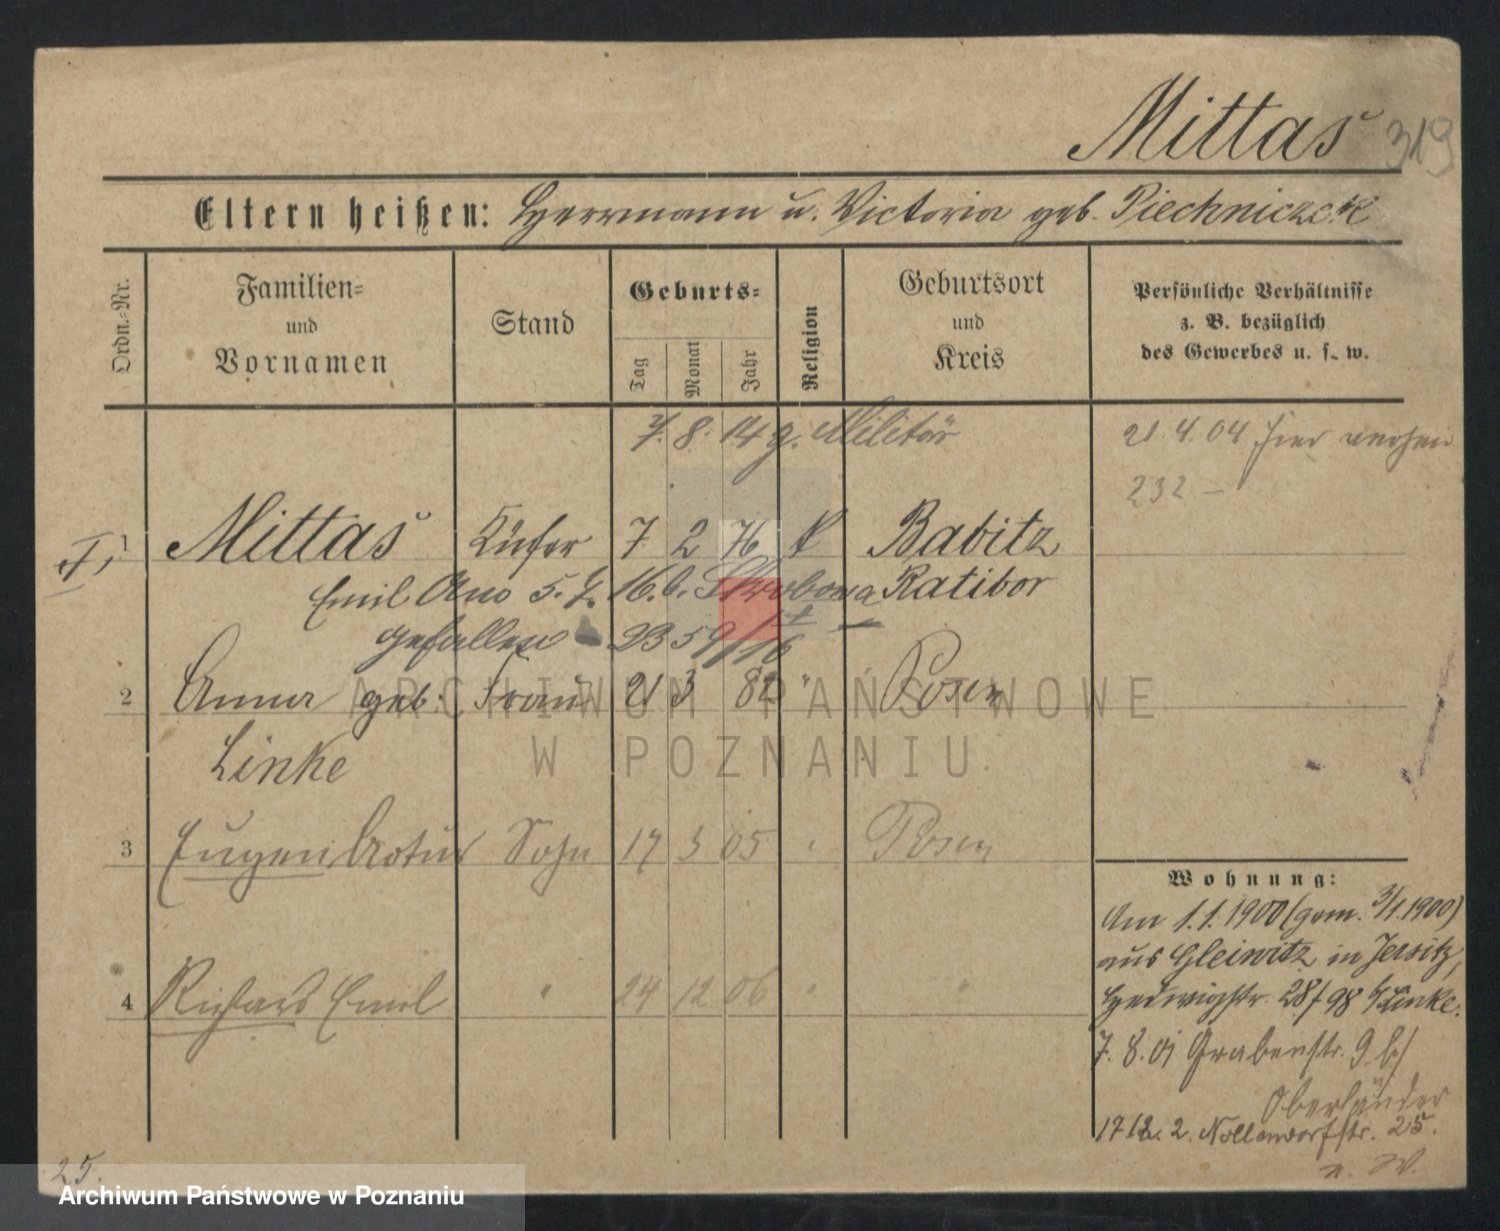 Mittas 319
Eltern heißen: Herrmann u. Victoria geb. Piechniczek
Ordn.-Nr.
Familien=
und
Vornamen
Stand
Geburts=
Tag
Monat
Jahr
Religion
Geburtsort
und
Kreis
Persönliche Verhältnisse
z. B. bezüglich
des Gewerbes u. s. w.
7. 8. 14 z. Militär
21. 4. 04 hier
232 –
I, 1 Mittas Küfer 7 2 76 k Babitz
Emil 5. 16. Ratibor
gefallen 23
2 Anna geb: Frau 21 3 82 " Posen
Linke
3 Eugen Artur Sohn 17 3 05 " Posen
4 Richard Emil " 24 12 06 " "
Wohnung:
Am 1.1.1900 (gem. 3/1.1900)
aus Gleiwitz in Jersitz,
Hedwigstr. 28/98 b/Linke.
7. 8. 01 Grabenstr. 9 b/
Oberländer
17 12. 2. Nollendorfstr. 25.
n. W.
25.
ARCHIWUM PAŃSTWOWE
W POZNANIU
Archiwum Państwowe w Poznaniu